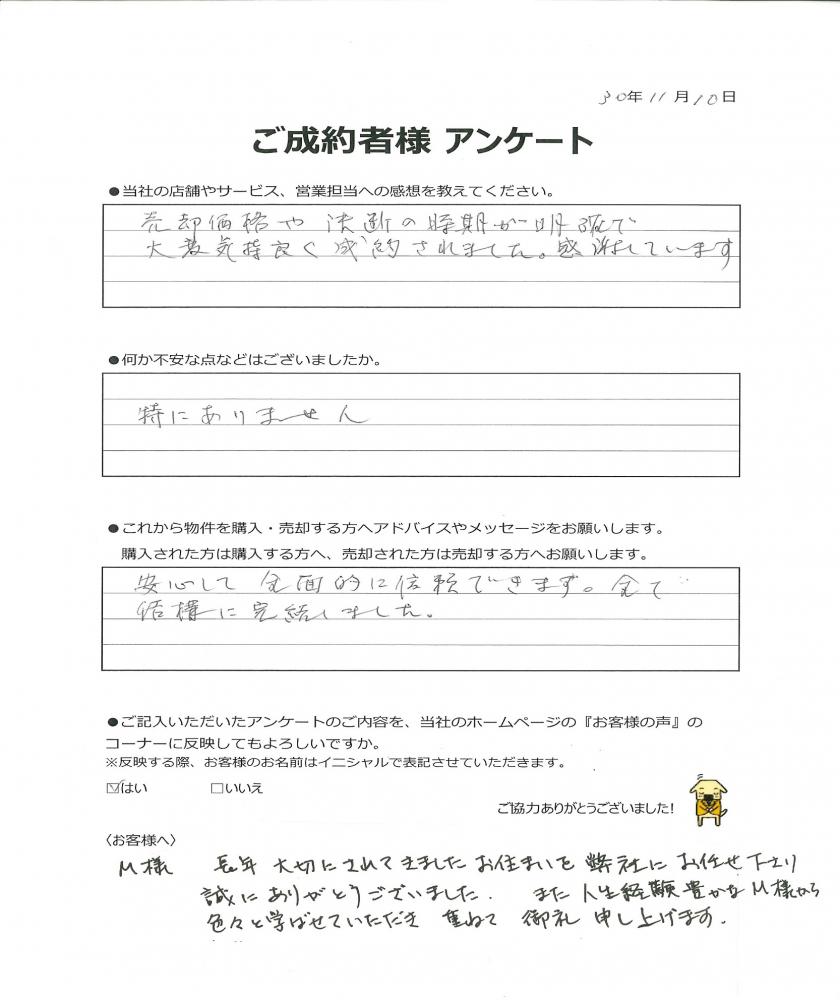 30年11月10日
ご成約者様 アンケート
●当社の店舗やサービス、営業担当への感想を教えてください。
売却価格や決断の時期が明確で
大変気持良く成約されました。感謝しています
●何か不安な点などはございましたか。
特にありません
●これから物件を購入・売却する方へアドバイスやメッセージをお願いします。
購入された方は購入する方へ、売却された方は売却する方へお願いします。
安心して全面的に信頼できます。全て
結構に完結しました。
●ご記入いただいたアンケートのご内容を、当社のホームページの『お客様の声』の
コーナーに反映してもよろしいですか。
※反映する際、お客様のお名前はイニシャルで表記させていただきます。
☑はい □いいえ
ご協力ありがとうございました!
〈お客様へ〉
M様 長年大切にされてきましたお住まいを弊社にお任せ下さり
誠にありがとうございました. また人生経験豊かなM様から
色々と学ばせていただき 重ねて御礼申し上げます.